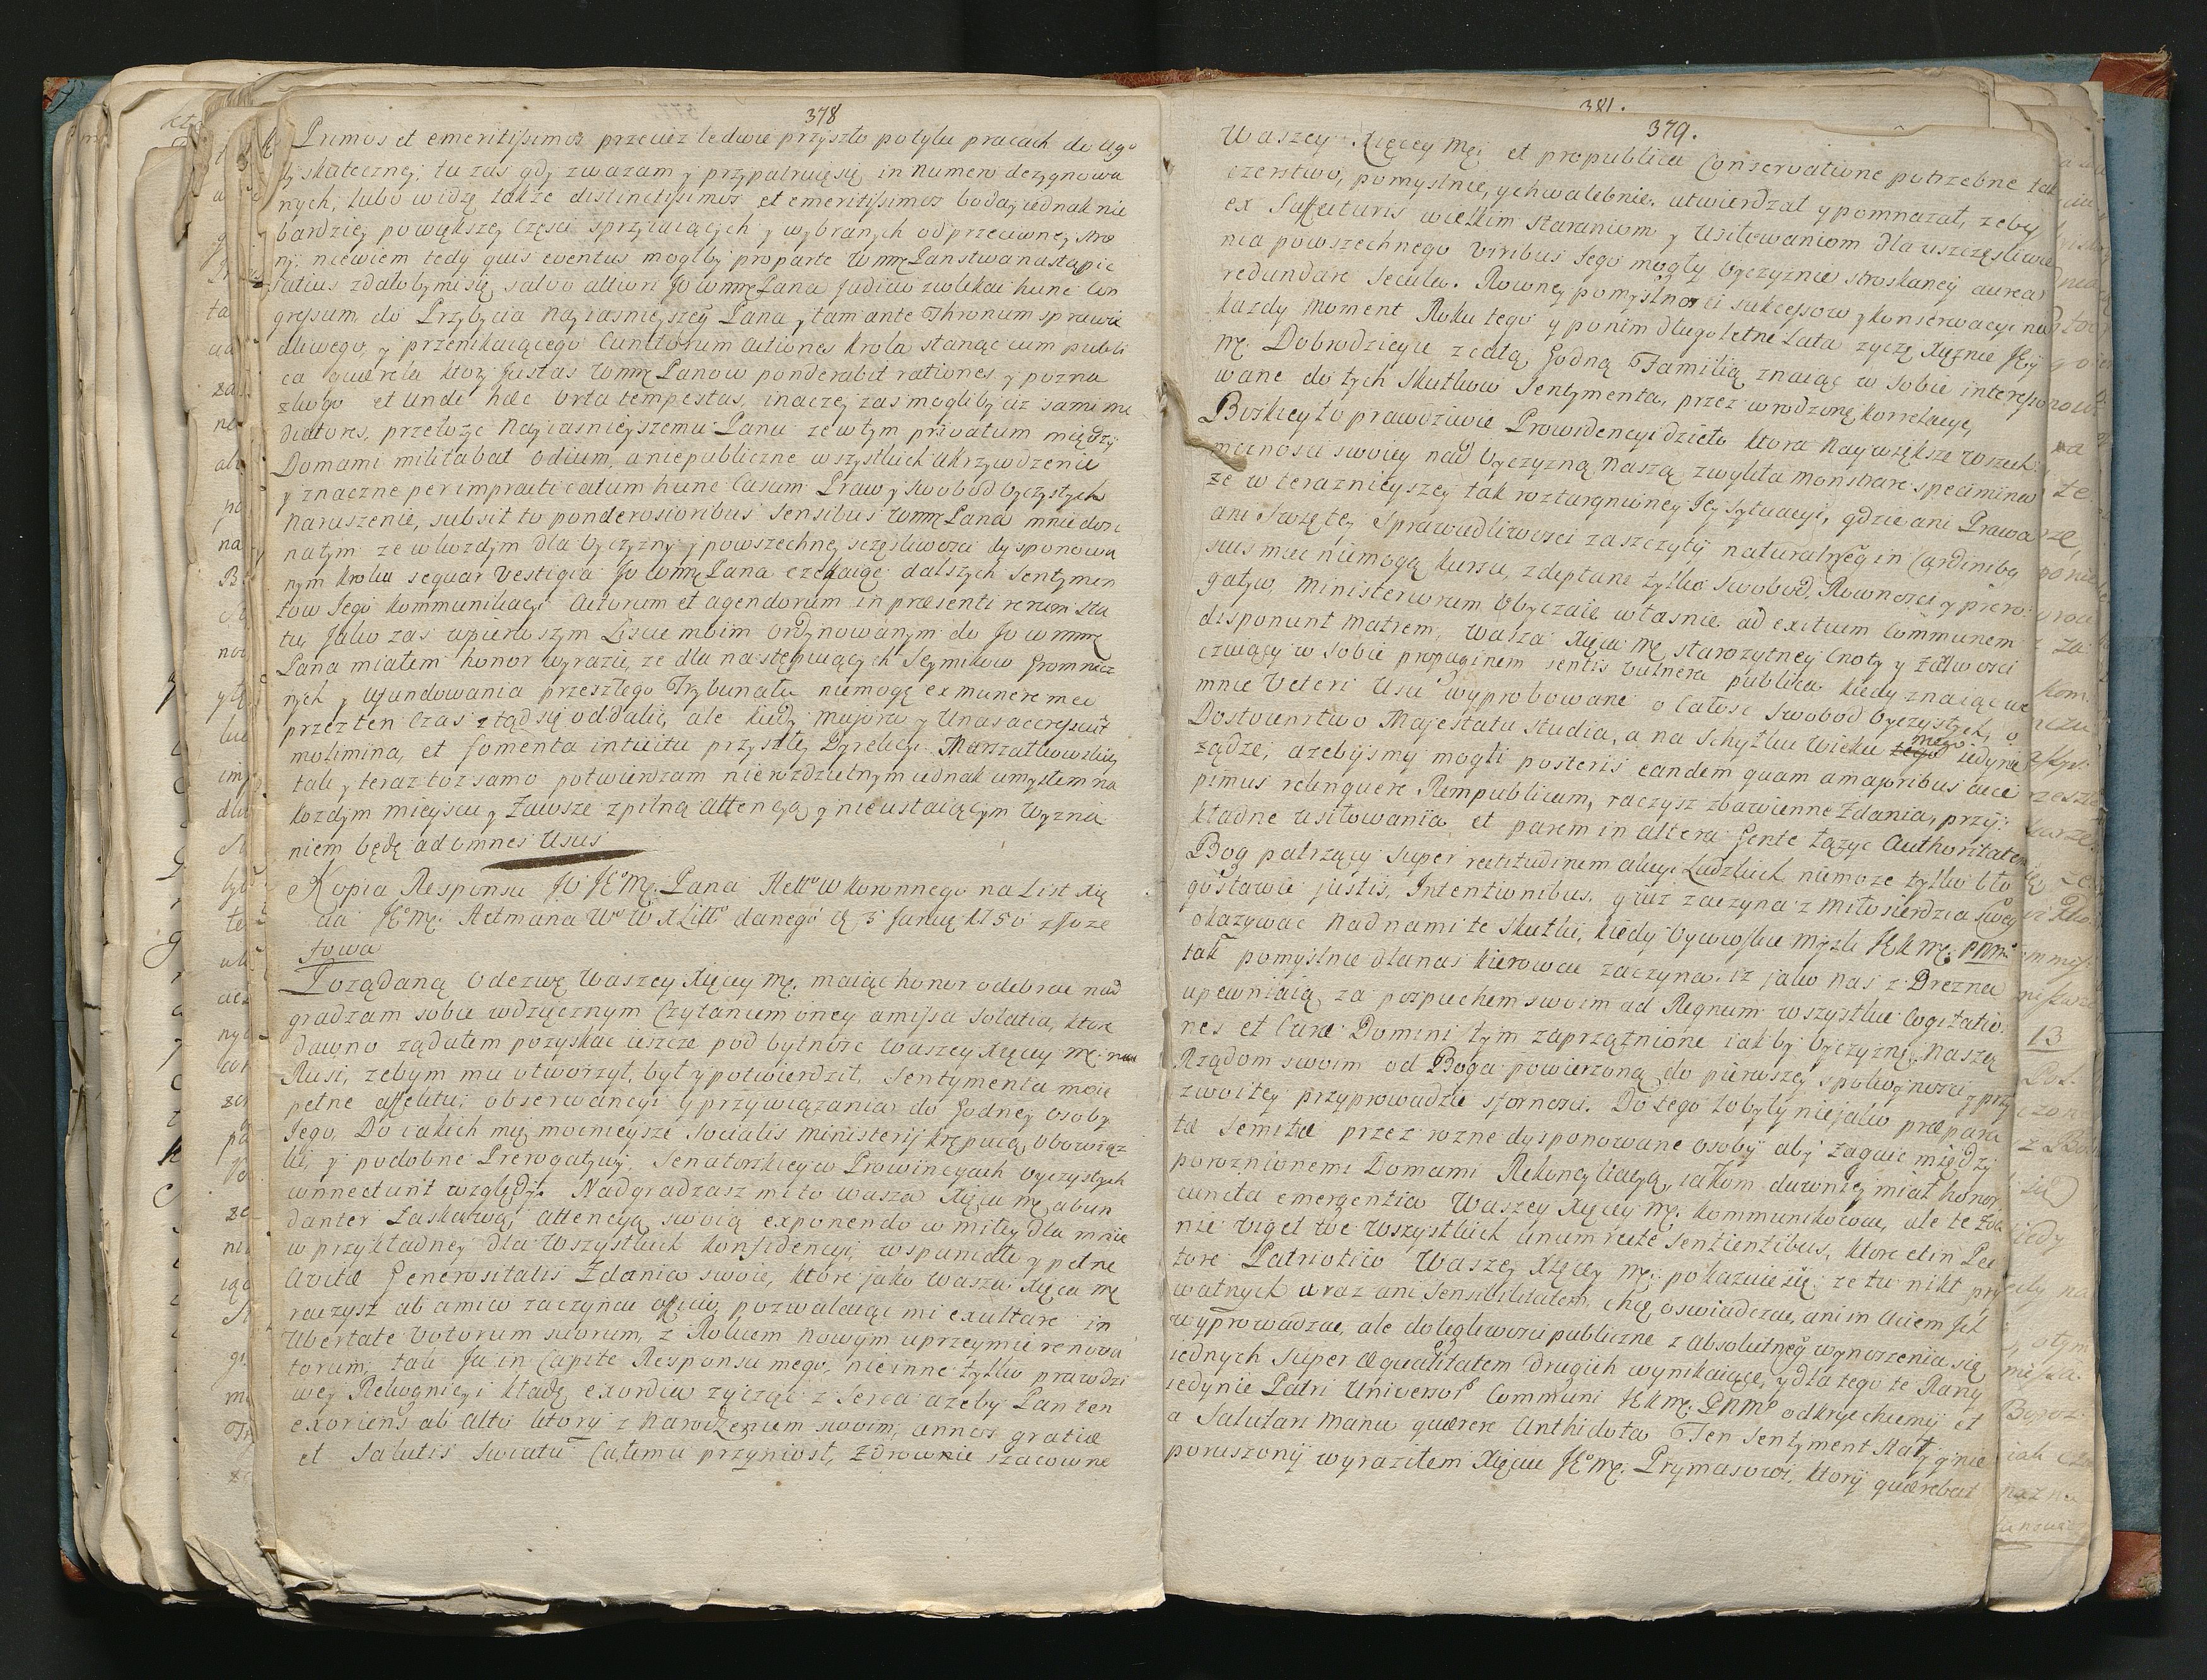 378
Primos et emeritissimos przeciez ledwie przyszło potylu pracach do ugo
dy skuteczney, tu zas gdy zwazam y przypatruię się in Numero dezygnowa
nych, lubo widzę także distinctissimos et emeritissimos boday iednak nie
bardziey powiększey Częsci sprzyiaiących y wybranych od przeciwney stro
ny, niewiem tedy quis eventus mogłby pro parte WmmPanstwa nastąpic
satius zdałobymisię salvo altiori JoWmmPana judicio zwlekac hunc Con
gressum do Przybycia Nayiasnieyszey Pana y tam ante Thronum sprawie
dliwego, y przenikaiącego Cunctorum actiones Krola stanąc cum publi
ca querela ktory justas WmmPanow ponderabit rationes y pozna
zkogo et unde haec orta tempestas, inaczey zas mogliby ciz sami me
diatores, przełożyc Nayiasnieyszemu Panu ze w tym privatum między
Domami militabat odium, a niepubliczne wszystkich ukrzywdzenie
y znaczne per impracticatum hunc Casum Praw y Swobod Oyczystych
naruszenie, subsit to ponderosioribus sensibus WmmPana mnie dosc
natym ze wkozdym dla Oyczyzny y powszechney sczęsliwosci dysponowa
nym kroku sequar vestigia JoWmmPana czekaiąc dalszych Sentymen
tow Jego Kommunikacyi Actorum et agendorum in praesenti rerum sta
tu, Jako zas wpierwszym Liscie moim Ordynowanym do JoWmm
Pana miałem honor wyrazic, ze dla następuiących Seymikow Gromnicz
nych y ufundowania przeszłego Trybunału niemogę ex munere meo
przez ten Czas ztąd się oddalic, ale kiedy majora y Unas accrescunt
molimina, et fomenta intuitu przyszłey Dyrekcyi Marszałkowskiey
tak y teraz toz samo potwierdzam nierozdzielnym iednak umysłem na
kozdym mieyscu y Zawsze z pilną attencyą y nieustaiącym Wyzna
niem będę ad omnes Usus
Kopia Responsu JO JEMci Pana Hettº W Koronnego na List Xię
cia JEºMci Hetmana Wº W X Littº danego d 3 January 1750 z Joze
fowa
Pożądaną Odezwę Waszey Xięcey Mci maiąc honor odebrac nad
gradzam sobie wdzięcznym Czytaniem oney amissa solatia, ktore
dawno ządałem pozyskac ieszcze pod bytnosc Waszey Xięcey Mci na
Rusi, zebym mu otworzył, był y potwierdził, Sentymenta moie
pełne affektu, obserwancyi y przywiązania do Godney osoby
Jego, Do iakich mię mocnieysze Socialis Ministerij krępuią Obowiąz
ki, y podobne Prerogatywy, Senatorskiey w Prowincyach Oyczystych
connectunt względy. Nadgradzasz mi to Wasza Xięca Mć abun
danter Łaskawą, attencyą swoią exponendo w miłey dla mnie
w przykładney dla Wszystkich konfidencyi, wspaniałe y pełne
Avitae Generositatis Zdania swoie, ktore jako Wasza Xięca Mć
raczysz ab amico zaczynac officio, pozwalaiąc mi exultare in
Ubertate Votorum suorum, z Rokiem Nowym uprzeymie renova
torum, tak Ja in Capite Responsu mego, nieinne tylko prawdzi
wey Rekognicyi kładę exordia zycząc z serca azeby Pan ten
exoriens ab alto ktory z Narodzeniem swoim, annos gratiae
et Salutis swiatu Całemu przyniosł, Zdrowie szacowne
381.
379.
Waszey Xięcey Mci et pro publica Conservatione potrzebne tak
czerstwo, pomyslnie, y chwalebnie, utwierdzał y pomnazał, zeby
ex Suffuturis wielkim staraniom y Usiłowaniom dla uszczęsliwie
nia powszechnego viribus Jego mogły Oyczyznie stroskaney aurea
redundare Secula. Rowney pomyslnosci sukcessow y konserwacyi na
kazdy moment Roku tego y ponim długoletne Lata zyczę Xiężnie JEy
Mci Dobrodzieyce z całą Godną Familią znaiąc w sobie interesso
wane do tych Skutkow Sentymenta, przez wrodzoną korrelacyę,
Boskiey to prawdziwie Prowidencyi dzieło ktora Naywiększe Wszech
mocnosci swoiey nad Oyczyzną Naszą zwykła monstrare specimina
ze w teraznieyszey tak roztargnioney Jey sytuacyi, gdzie ani Prawa
ani Swiętey Sprawiedliwosci zaszczyty naturalnego in Cardinibus
suis miec niemogą kursu, zdeptane tylko Swobod, Rownosci y prero
gatyw Ministeriorum Obyczaie własnie ad exitium Communem
disponunt Matrem, Wasza Xięca Mć starozytney Cnoty y Załwosci
czuiący w sobie propaginem sentis vulnera publica kiedy znaiąc we
mnie Veteri Usu wyprobowane o Całosc Swobod Oyczystych, o
Dostoienstwo Majestatu studia, a na Schyłku Wieku tego mego iedynie
ządze, azebysmy mogli posteris eandem quam a majoribus acce
pimus relinquere Rempublicam, raczysz zbawienne Zdania, przy
kładne usiłowania et parem in altera Gente łązyc Authoritatem
Bog patrzący super rectitudinem akcyi Ludzkich niemoze tylko bło
gosławic justis Intentionibus, y iuz zaczyna z miłosierdzia swego
okazywac nad nami te skutki, kiedy Oycowskie mysli JKMci PNMº
tak pomyslnie dlanas kierowac zaczyna, iz jako nas z Drezna
upewniaią, za pospiechem swoim ad Regnum wszystkie Cogitatio
nes et Curae Domini tym zaprzątnione iakby Oyczyznę Naszą
Rządom swoim od Boga powierzoną do pierwszey spokoynosci y przy
zwoitey przyprowadzic sfornosci. Do tego to były niejako praepara
tae Semitae przez rozne dysponowane osoby aby Zagaic między
poroznionemi Domami Rekoncyliacyą, iakom dawniey miał honor
cuncta emergentia Waszey Xięcey Mci kommunikowac, ale te Zda
nie viget we Wszystkich Unum recte sentientibus, ktore et in Pec
tore Patriotico Waszey Xięcey Mci pokazuie się, ze tu nikt pry
watnych uraz ani Sensibilitatem chcę oswiadczac, ani in Aciem Jch
wyprowadzac, ale dolegliwosci publiczne z absolutnego wynoszenia się
iednych super aequalitatem drugich wynikaiące, y dla tego te Rany
iedynie Patri Universorum Communi JKMci PNMº odkryc chcemy et
a Salutari Manu quaerere Anthidota Ten Sentyment staty y nie
poruszony wyraziłem Xięciu JEºMci Prymasowi, ktory quaerebat